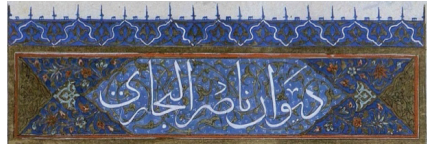 ديوان ناصر البخاری